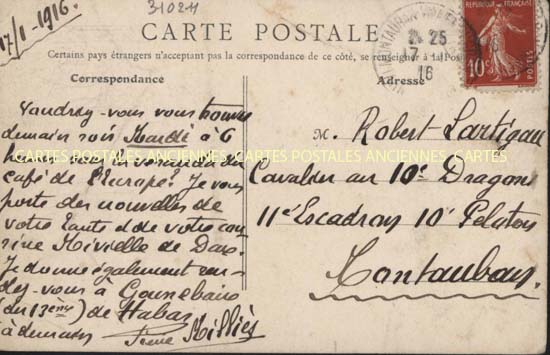 17/1-1916.
31024
CARTE POSTALE
Certains pays étrangers n'acceptant pas la correspondance de ce côté, se renseigner à la Poste
Correspondance
Adresse
RÉPUBLIQUE FRANÇAISE
10
POSTES
MONTAUBAN
25
17
16
Voudrez-vous vous trouver
demain soir Mardi à 6
café de l'Europe? Je vous
porte des nouvelles de
votre tante et de votre cou
sine Mireille de Dax.
Je donne également ren-
dez-vous à
(du 13ème) de Habas
à demain
Pierre Milliès
M. Robert Lartigau
Cavalier au 10e Dragons
11e Escadron 10e Peloton
Montauban
CARTES POSTALES ANCIENNES CARTES POSTALES ANCIENNES CARTES